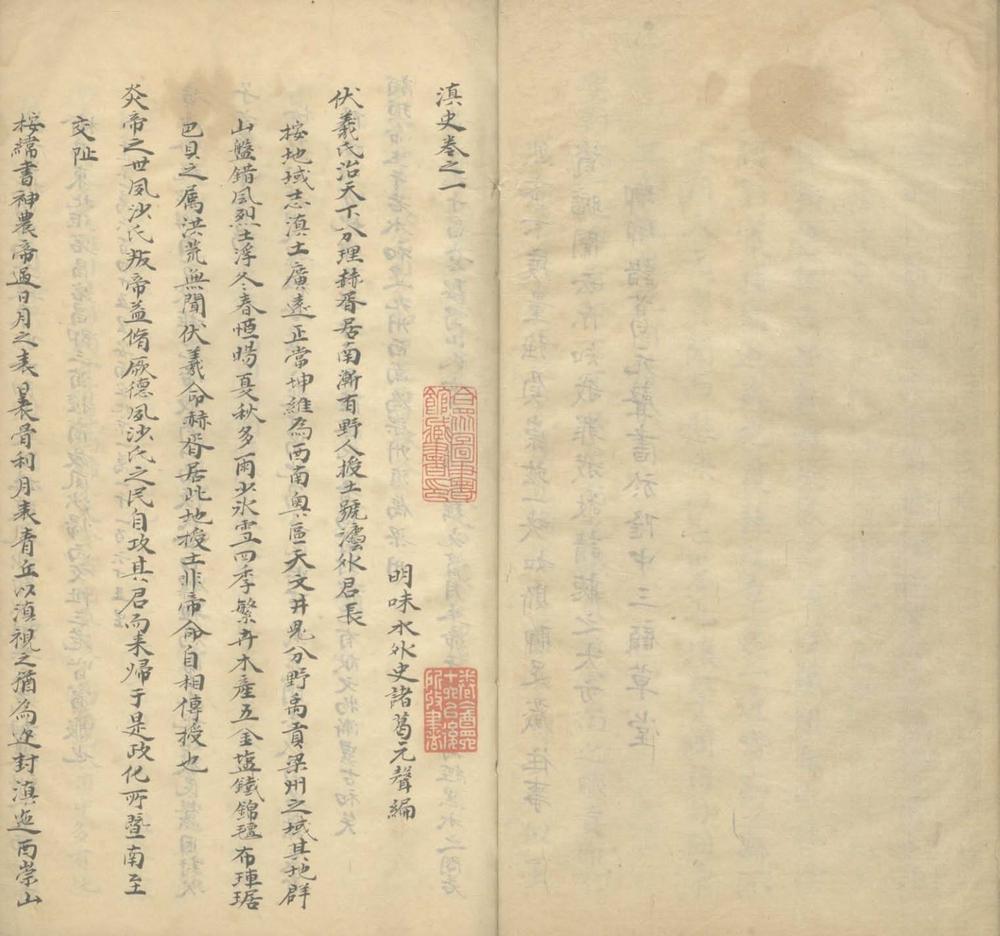 滇史卷之一
明味水外史諸葛元聲編
伏羲氏治天下分理赫胥居南漸有野人授土號濾外君長
按地域志滇土廣遠正當坤維為西南奧區天文井鬼分野禹貢梁州之域其地群
山盤錯風烈土浮冬春恒暘夏秋多雨少氷雪四季繁卉木產五金塩鐵錦氊布璉琚
巴貝之属洪荒無聞伏羲命赫胥居此地授土非帝命自相傳授也
炎帝之世夙沙氏叛帝益脩厥德夙沙氏之民自攻其君而来帰于是政化所暨南至
交阯
按緯書神農帝過日月之表骨利月表青丘以滇視之猶為迩封滇迤西崇山